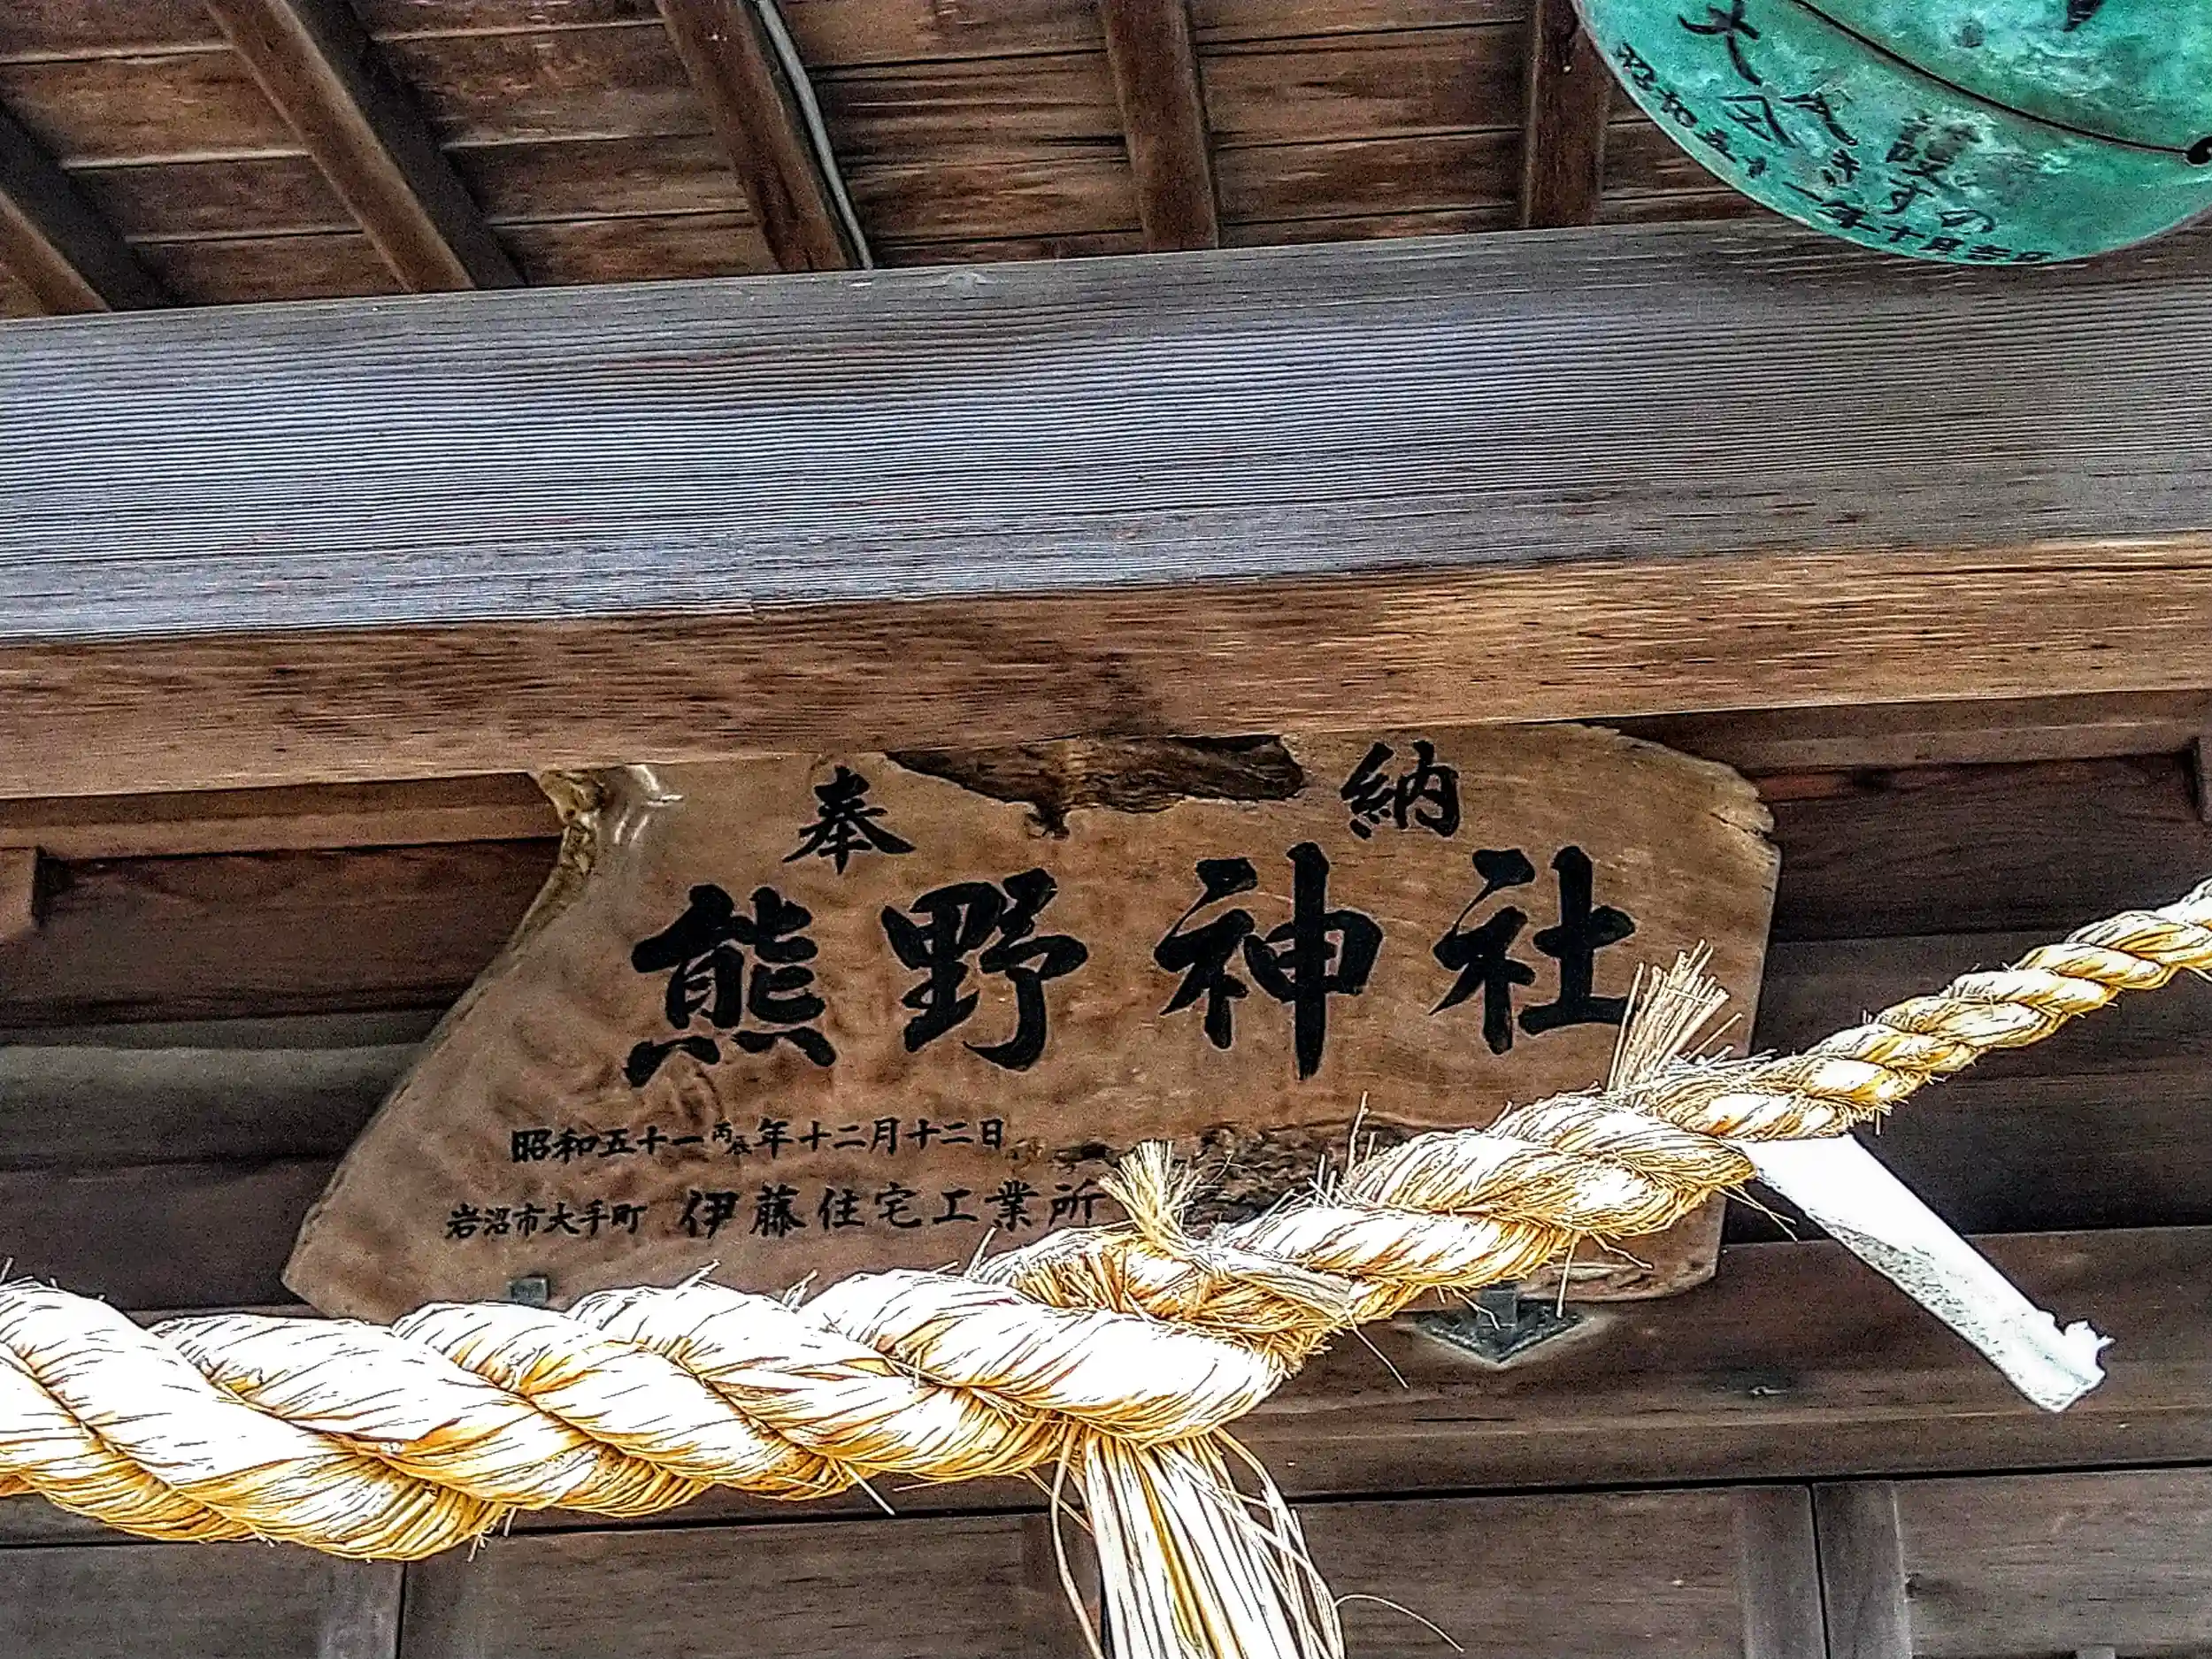 奉納
熊野神社
昭和五十一丙辰年十二月十二日
岩沼市大手町 伊藤住宅工業所
昭和五十一年十月吉日